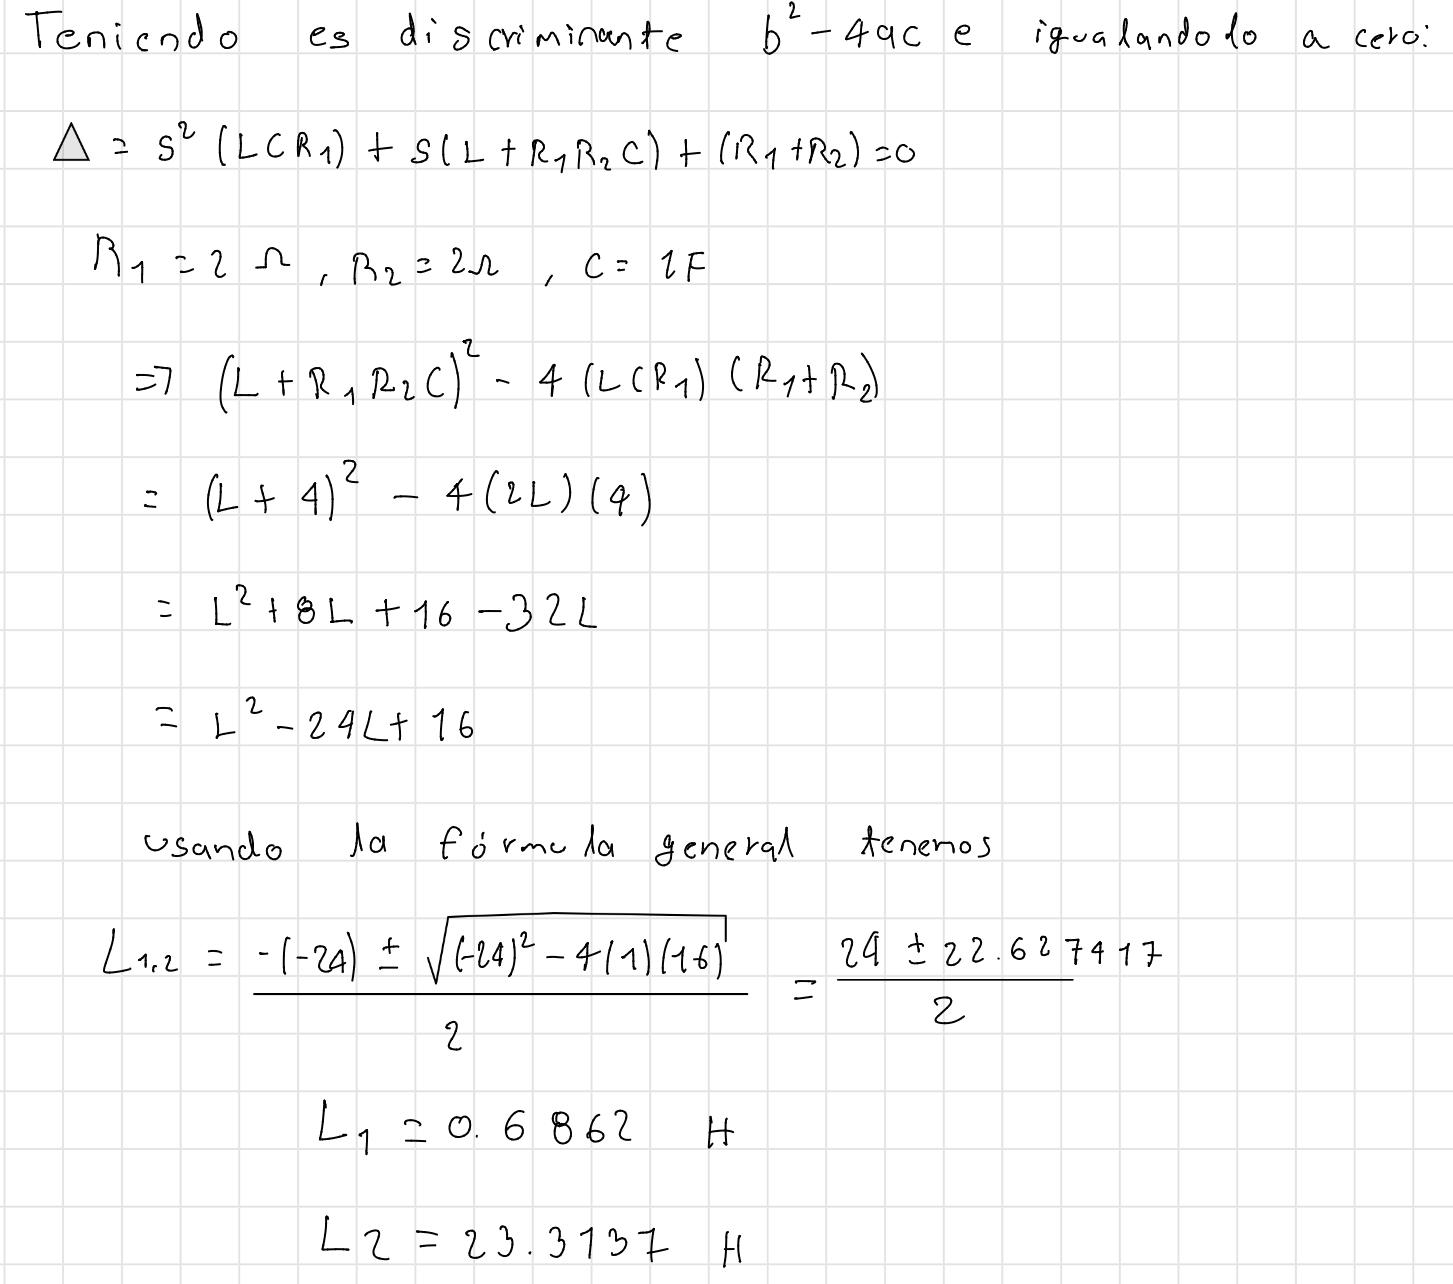 Teniendo es discriminante b² - 4ac e igualandolo a cero:
Δ = s² (LCR₁) + s(L + R₁R₂C) + (R₁+R₂) = 0
R₁ = 2 Ω , R₂ = 2Ω , C = 1F
⇒ (L + R₁R₂C)² - 4 (LCR₁) (R₁+R₂)
= (L + 4)² - 4(2L)(4)
= L² + 8L + 16 - 32L
= L² - 24L + 16
usando la fórmula general tenemos
L₁,₂ = (-(-24) ± √((-24)² - 4(1)(16))) / 2 = (24 ± 22.627417) / 2
L₁ = 0.6862 H
L₂ = 23.3137 H